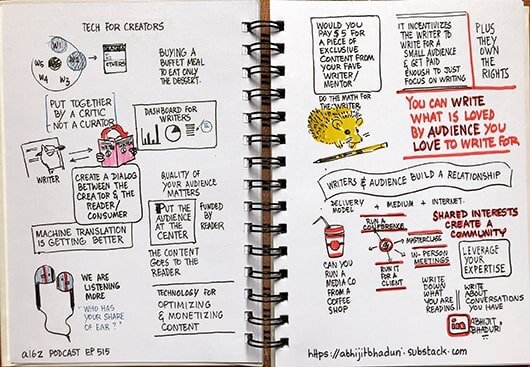 TECH FOR CREATORS
W1
W2
W3
W4
BUYING A
BUFFET MEAL
TO EAT ONLY
THE DESSERT.
PUT TOGETHER
BY A CRITIC
NOT A CURATOR
DASHBOARD FOR
WRITERS
WRITER
CREATE A DIALOG
BETWEEN THE
CREATOR & THE
READER/
CONSUMER
QUALITY OF
YOUR AUDIENCE
MATTERS
PUT THE
AUDIENCE
AT THE
CENTER
FUNDED
BY
READER
MACHINE TRANSLATION
IS GETTING BETTER
THE CONTENT
GOES TO THE
READER
WE ARE
LISTENING
MORE
"WHO HAS
YOUR SHARE
OF EAR?"
TECHNOLOGY FOR
OPTIMIZING
& MONETIZING
CONTENT
a16z PODCAST EP 515
WOULD YOU
PAY $5 FOR
A PIECE OF
EXCLUSIVE
CONTENT FROM
YOUR FAVE
WRITER/
MENTOR
IT INCENTIVIZES
THE WRITER TO
WRITE FOR A
SMALL AUDIENCE
& GET PAID
ENOUGH TO JUST
FOCUS ON WRITING
PLUS
THEY
OWN
THE
RIGHTS
DO THE MATH FOR
THE WRITER
YOU CAN WRITE
WHAT IS LOVED
BY AUDIENCE YOU
LOVE TO WRITE FOR
WRITERS & AUDIENCE BUILD A RELATIONSHIP
DELIVERY
MODEL + MEDIUM + INTERNET.
RUN A
CONFERENCE
MASTERCLASS
IN-PERSON
MEETINGS
RUN IT
FOR A
CLIENT
SHARED INTERESTS
CREATE A
COMMUNITY
LEVERAGE
YOUR
EXPERTISE
CAN YOU
RUN A
MEDIA CO
FROM A
COFFEE
SHOP
WRITE
DOWN
WHAT
YOU ARE
READING
WRITE
ABOUT
CONVERSATIONS
YOU HAVE
in
ABHIJIT
BHADURI
https://abhijitbhaduri.substack.com